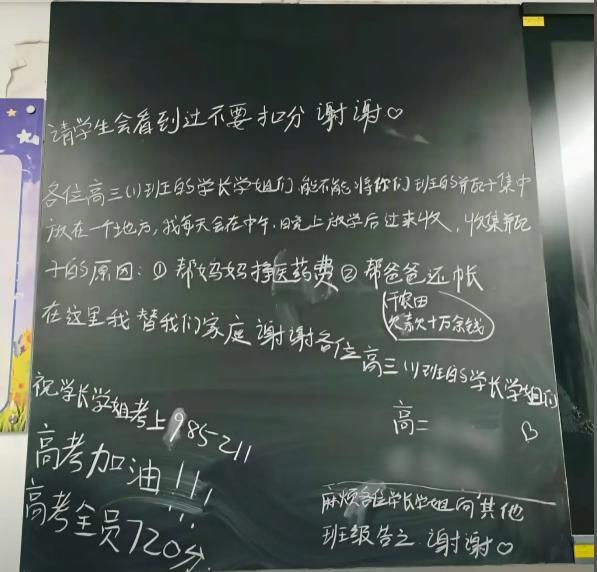 请学生会看到这不要扣分 谢谢♡
各位高三(1)班的学长学姐们,能不能将你们班的瓶子集中
放在一个地方,我每天会在中午、晚上放学后过来收,收集瓶
子的原因:① 帮妈妈挣医药费② 帮爸爸还帐
干农田
欠款十万余钱
在这里我替我们家庭谢谢各位高三(1)班的学长学姐们
高二 ♡
祝学长学姐考上985 211
高考加油!!!
高考全员720分
麻烦各位学长学姐向其他
班级告之 谢谢♡